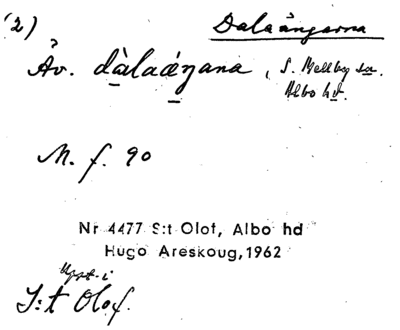 (2)
Dalaängarna
Äv. dàlaáŋana, S. Mellby sn.
Albo hd.
M. f. 90
Nr 4477 S:t Olof, Albo hd
Hugo Areskoug, 1962
Uppt. i
S:t Olof.